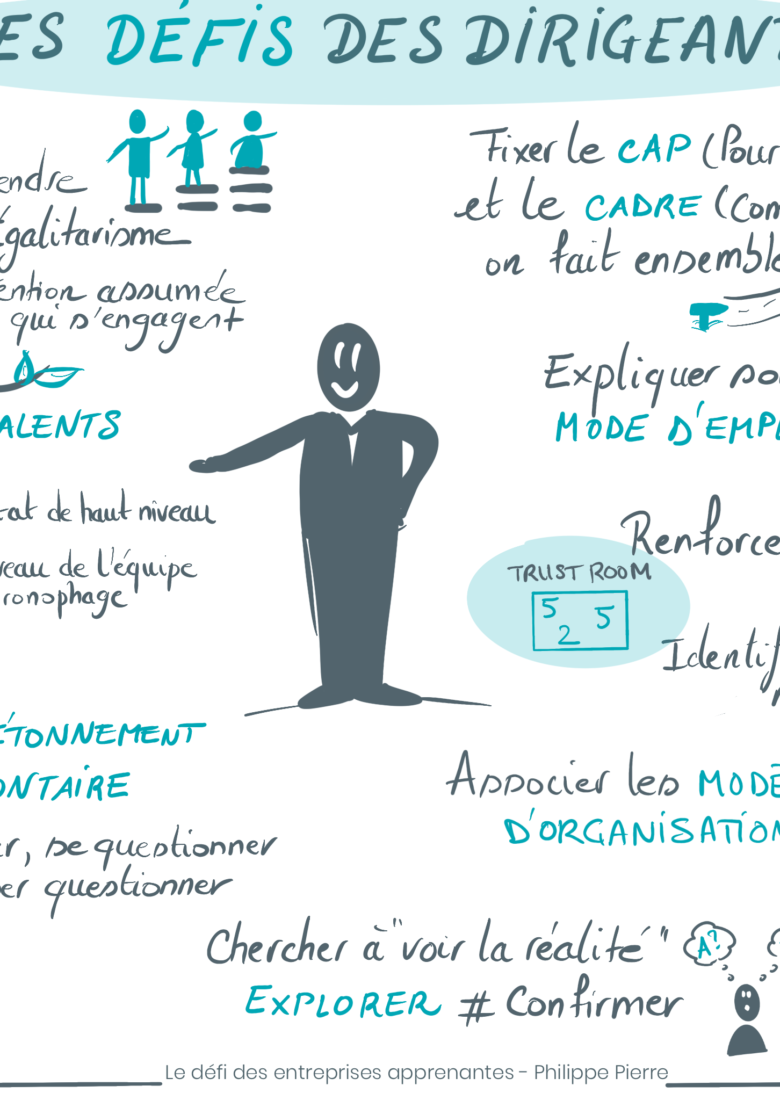 ES DÉFIS DES DIRIGEANT
endre
égalitarisme
ention assumée
qui s'engagent
ALENTS
tat de haut niveau
veau de l'équipe
ronophage
ÉTONNEMENT
ONTAIRE
er, se questionner
er questionner
Fixer le CAP (Pour
et le CADRE (Com
on fait ensemble
Expliquer so
MODE D'EMPL
Renforce
TRUST ROOM
5 5
2
Identif
Associer les MODE
D'ORGANISATION
Chercher à "voir la réalité"
A?
EXPLORER # Confirmer
Le défi des entreprises apprenantes - Philippe Pierre